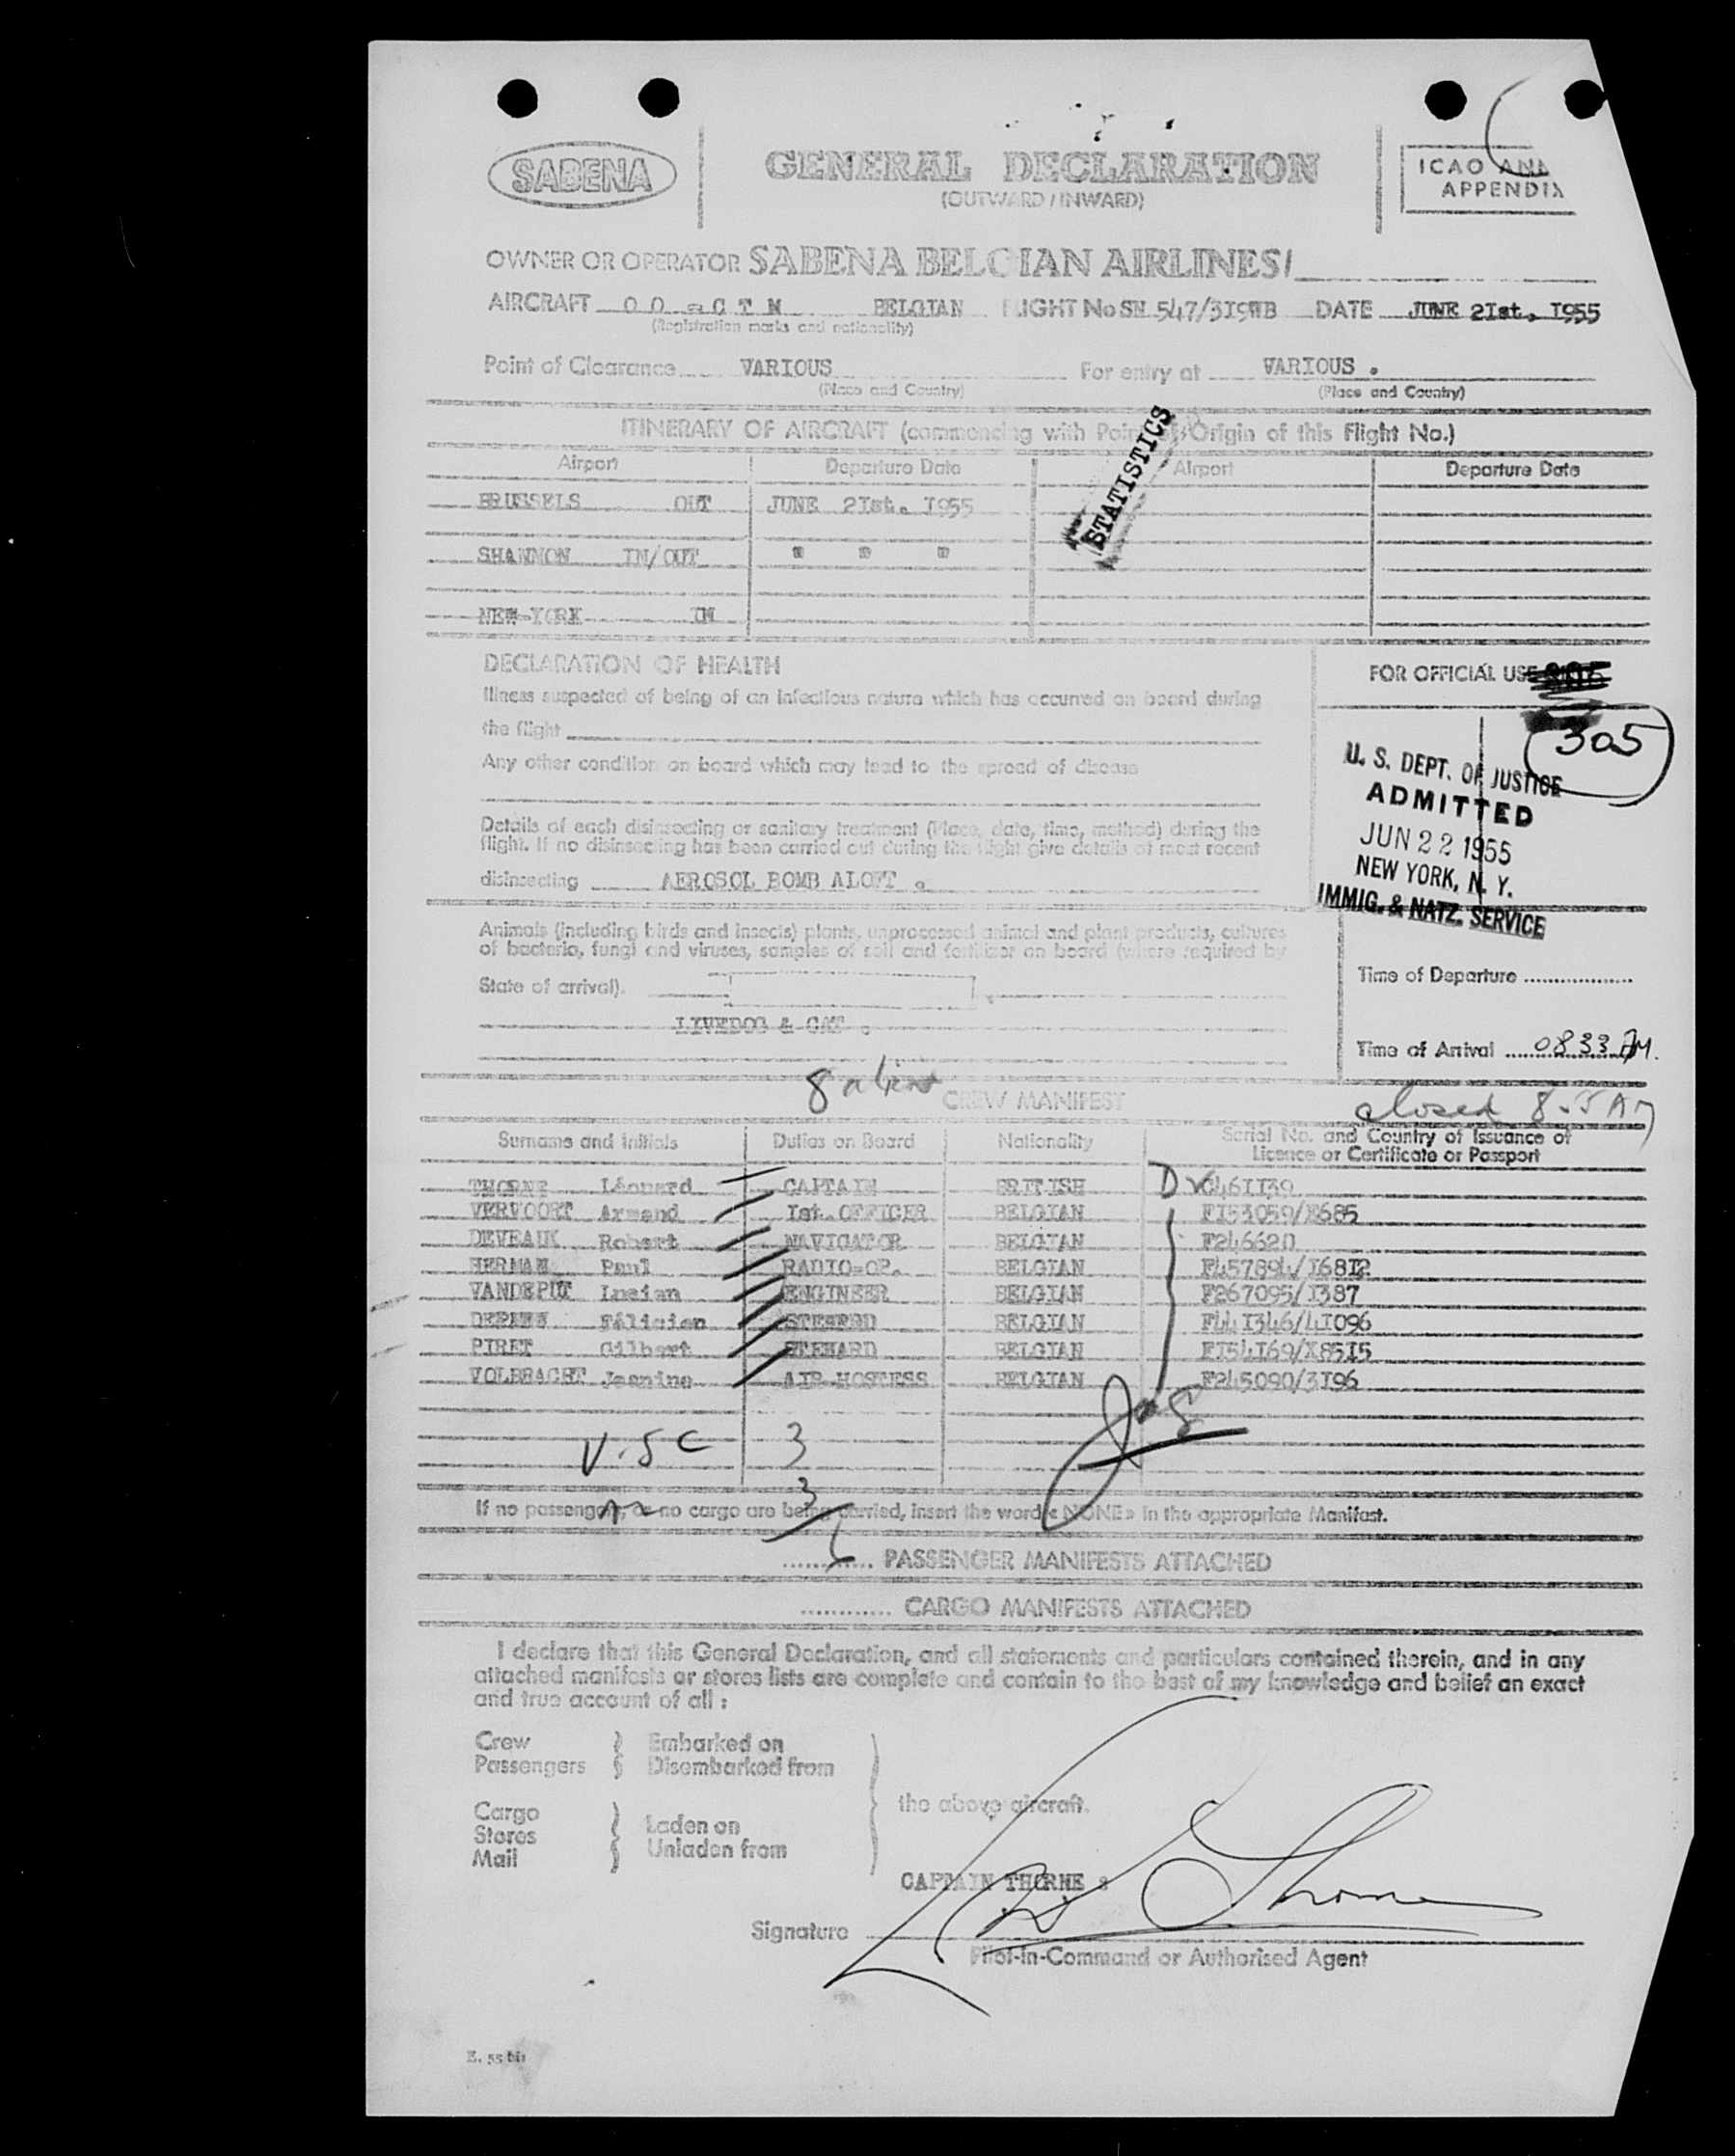 SABENA
GENERAL DECLARATION
(OUTWARD / INWARD)
ICAO
APPENDIX
OWNER OR OPERATOR SABENA BELGIAN AIRLINES/
AIRCRAFT OO - C T N BELGIAN FLIGHT No SN 547/3I9WB DATE JUNE 2Ist, I955
(Registration marks and nationality)
Point of Clearance VARIOUS For entry at VARIOUS .
(Place and Country) (Place and Country)
ITINERARY OF AIRCRAFT (commencing with Point of Origin of this Flight No.)
STATISTICS
Airport Departure Date Airport Departure Date
BRUSSELS OUT JUNE 2Ist. I955
SHANNON IN/OUT " " "
NEW-YORK IN
DECLARATION OF HEALTH
FOR OFFICIAL USE
Illness suspected of being of an infectious nature which has occurred on board during
the flight
305
Any other condition on board which may lead to the spread of disease
U. S. DEPT. OF JUSTICE
ADMITTED
JUN 22 1955
NEW YORK, N. Y.
IMMIG. & NATZ. SERVICE
Details of each disinsecting or sanitary treatment (Place, date, time, method) during the
flight. If no disinsecting has been carried out during the flight give details of most recent
disinsecting AEROSOL BOMB ALOFT .
Animals (including birds and insects) plants, unprocessed animal and plant products, cultures
of bacteria, fungi and viruses, samples of soil and fertilizer on board (where required by
State of arrival).
LIVEDOG & CAT .
Time of Departure
Time of Arrival 0833 AM.
8 aliens
CREW MANIFEST
closed 8.5 AM
Surname and Initials Duties on Board Nationality Serial No. and Country of Issuance of
Licence or Certificate or Passport
THORNE Léonard CAPTAIN BRITISH D C46II39
VERVOORT Armand Ist. OFFICER BELGIAN FI53059/E685
DEVEAUX Robert NAVIGATOR BELGIAN F246620
HERMAN Paul RADIO-OP. BELGIAN F457894/I68I2
VANDEPUT Lucien ENGINEER BELGIAN F267095/I387
Félicien STEWARD BELGIAN F44I346/4I096
PIRET Gilbert STEWARD BELGIAN FI54I69/X85I5
VOLBRACHT Jeanine AIR-HOSTESS BELGIAN F245090/3I96
V.SC 3
3
6
If no passengers, or no cargo are being carried, insert the word « NONE » in the appropriate Manifest.
PASSENGER MANIFESTS ATTACHED
CARGO MANIFESTS ATTACHED
I declare that this General Declaration, and all statements and particulars contained therein, and in any
attached manifests or stores lists are complete and contain to the best of my knowledge and belief an exact
and true account of all :
Crew Embarked on
Passengers Disembarked from
the above aircraft.
Cargo
Stores Laden on
Mail Unladen from
CAPTAIN THORNE :
Signature Thorne
Pilot-in-Command or Authorised Agent
E. 55 bis